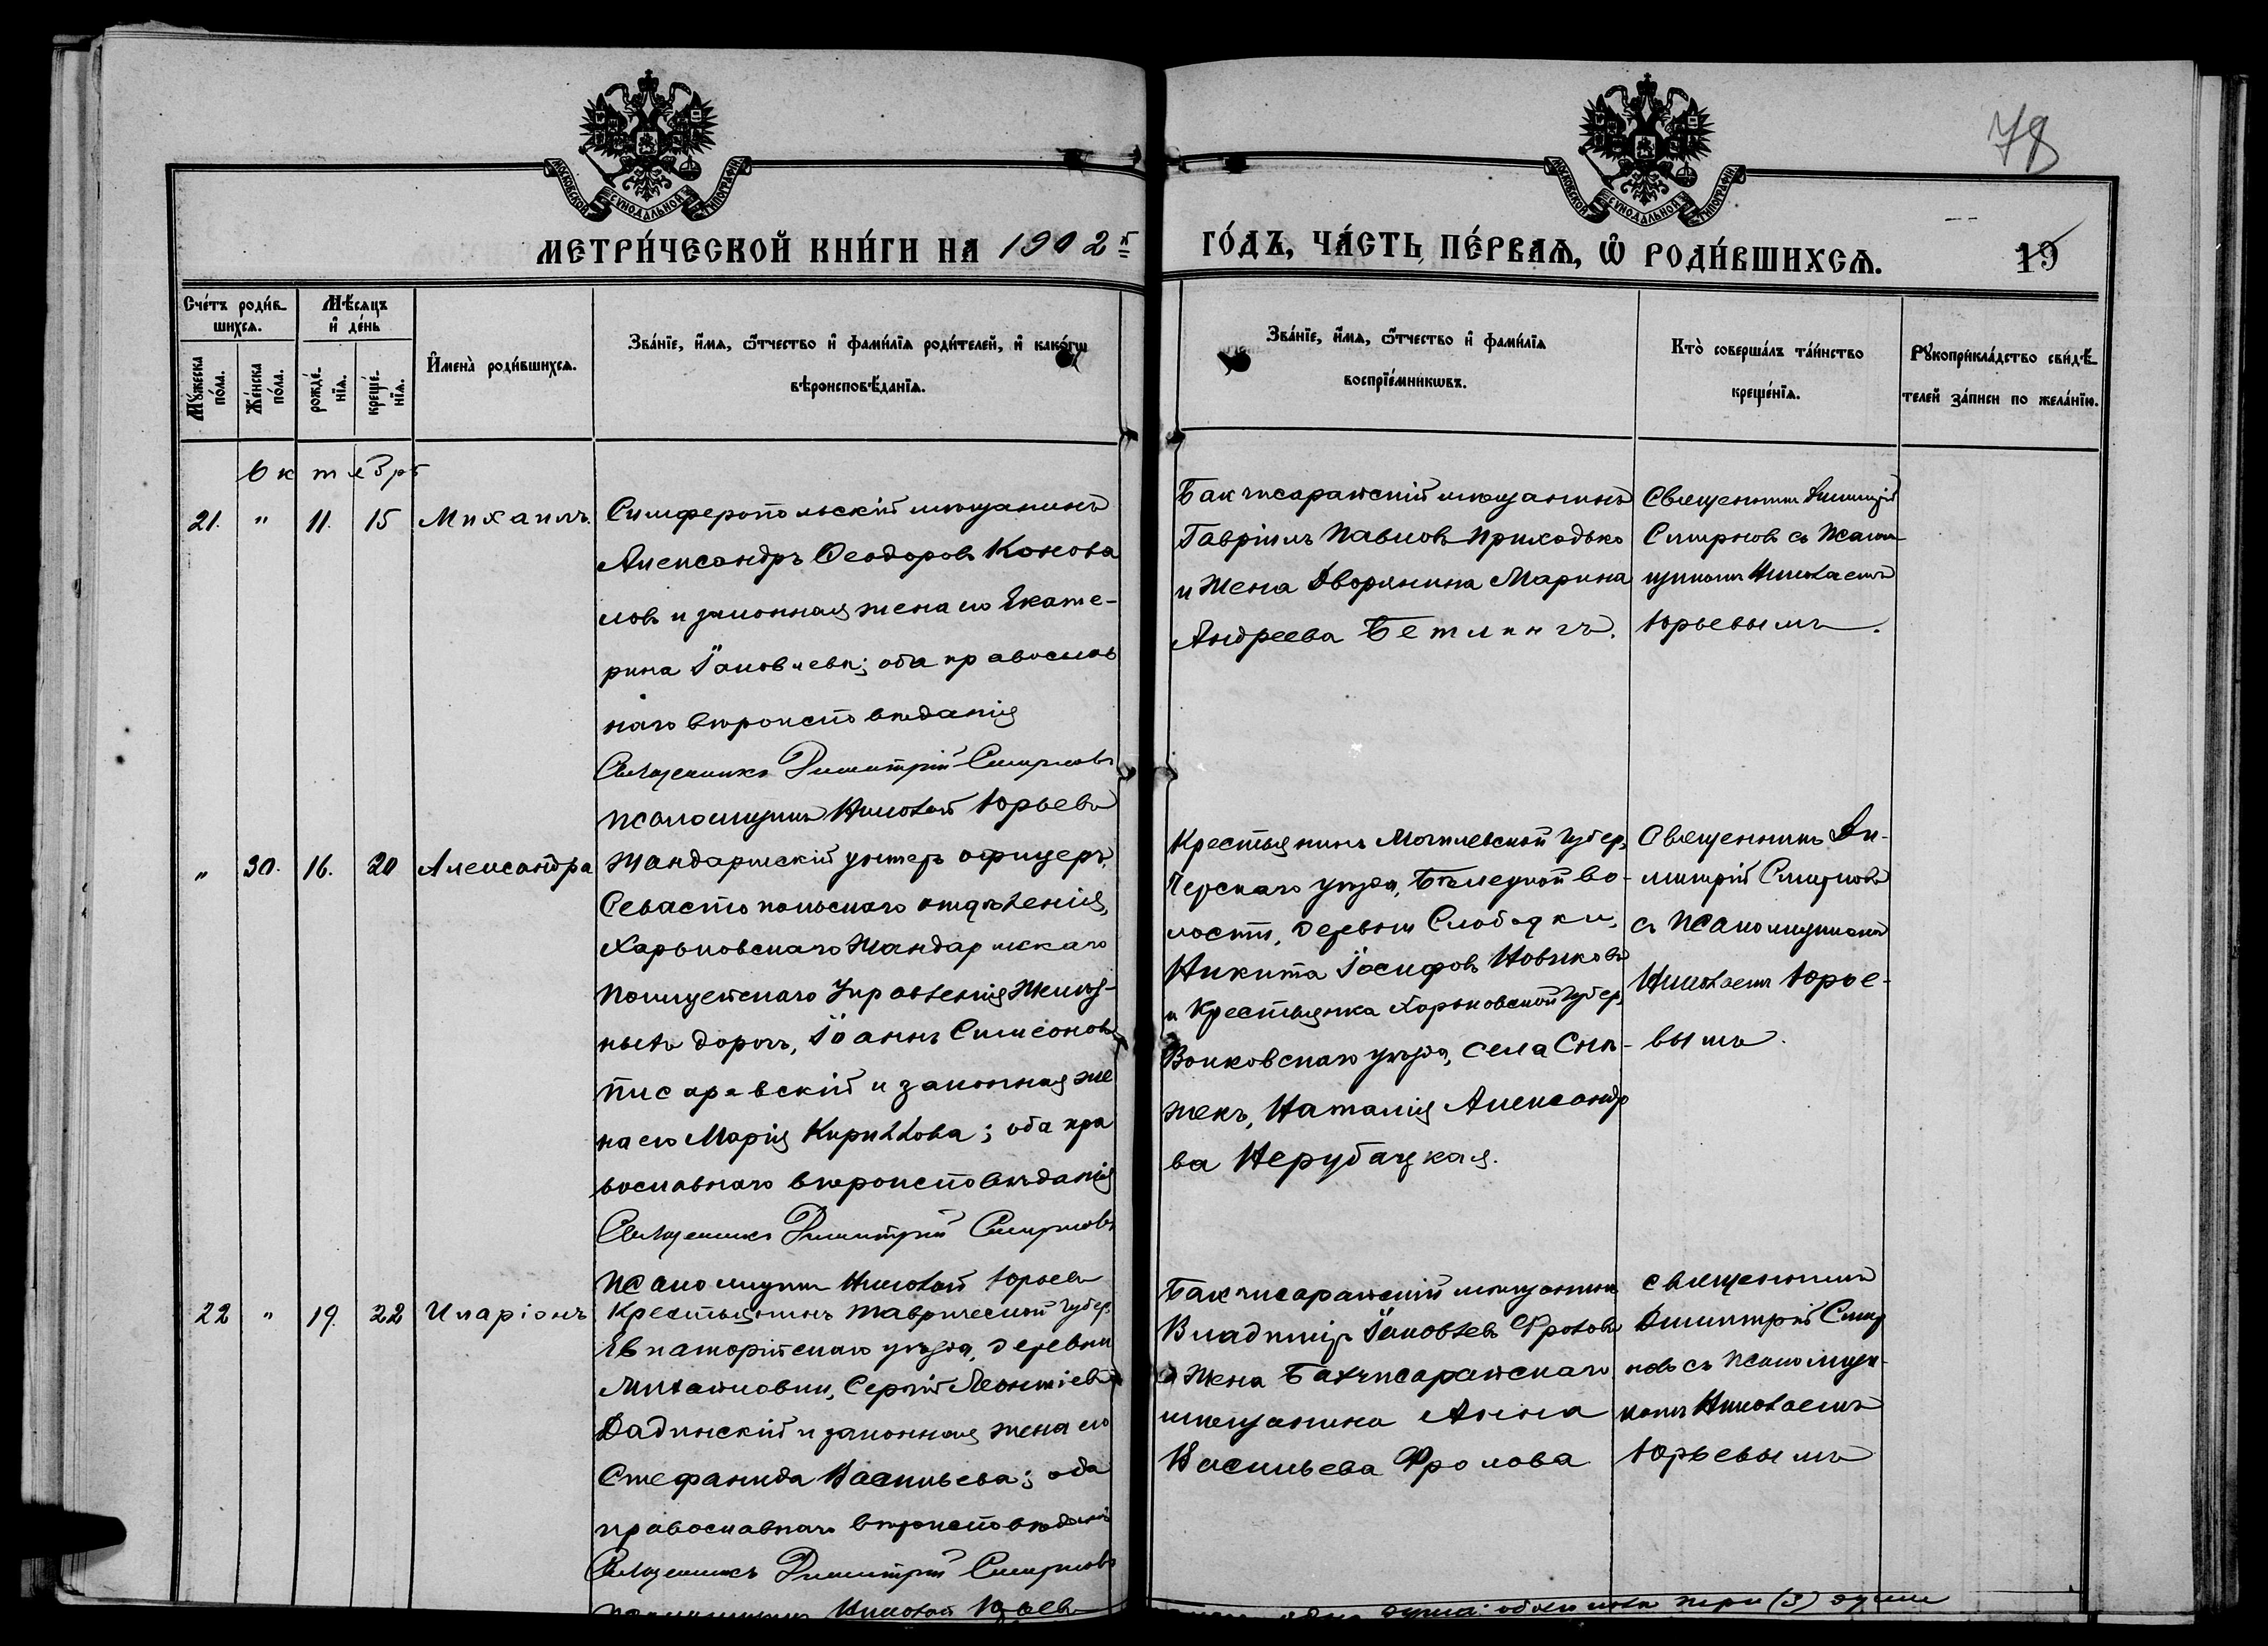 78
МОСКОВСКОЙ СѴНОДАЛЬНОЙ ТИПОГРАФІИ
МОСКОВСКОЙ СѴНОДАЛЬНОЙ ТИПОГРАФІИ
МЕТРИ́ЧЕСКОЙ КНИ́ГИ НА 1902 й
ГО́ДЪ, ЧА́СТЬ ПЕ́РВАѦ, Ѽ РОДИ́ВШИХСѦ.
19
Сче́тъ роди́в-
шихсѧ.
Мꙋ́жеска по́ла.
Же́нска по́ла.
Мѣ́сяцъ
и҆ де́нь
рожде́-
нїѧ.
креще́-
нїѧ.
И҆мена̀ роди́вшихсѧ.
Зва́нїе, и҆́мѧ, ѻ҆́тчество и҆ фами́лїѧ роди́телей, и҆ како́гѡ
вѣроисповѣ́данїѧ.
Зва́нїе, и҆́мѧ, ѻ҆́тчество и҆ фами́лїѧ
воспрїе́мникѡвъ.
Кто̀ соверша́лъ та́инство
креще́нїѧ.
Рꙋкоприкла́дство свидѣ́-
телей за́писи по жела́нїю.
Октябрь
21. " 11. 15 Михаилъ.
Симферопольскій мѣщанинъ
Александръ Ѳеодоровъ Конова
ловъ и законная жена его Екате-
рина Іаковлева; оба православ
наго вѣроисповѣданія
Священникъ Димитрій Смирновъ
Псаломщикъ Николай Юрьевъ
Бахчисарайскій мѣщанинъ
Гавріилъ Павловъ Приходько
и жена Дворянина Марина
Андреева Бетлингъ.
Священникъ Димитрій
Смирновъ съ Псалом-
щикомъ Николаемъ
Юрьевымъ.
" 30. 16. 20 Александра
Жандармскій унтеръ офицеръ,
Севастопольскаго отдѣленія,
Харьковскаго Жандармскаго
Полицейскаго Управленія Желѣз-
ныхъ дорогъ, Іоаннъ Симеоновъ
Писаревскій и законная же
на его Марія Кириллова; оба пра
вославнаго вѣроисповѣданія
Священникъ Димитрій Смирновъ
Псаломщикъ Николай Юрьевъ
Крестьянинъ Могилевской губер.
Черскаго уѣзда, Бѣлецкой во-
лости, деревни Слободки,
Никита Іосифовъ Новиковъ
и Крестьянка Харьковской губер.
Волковскаго уѣзда, села Снѣ-
жекъ, Наталія Александро
ва Нерубацкая.
Священникъ Ди-
митрій Смирновъ
съ Псаломщикомъ
Николаемъ Юрье-
вымъ.
22 " 19. 22 Иларіонъ
Крестьянинъ Таврической губер.
Евпаторійскаго уѣзда, деревни
Михайловки, Сергій Леонтіевъ
Дадинскій и законная жена его
Стефанида Васильева; оба
православнаго вѣроисповѣданія
Священникъ Димитрій Смирновъ
Псаломщикъ Николай Юрьевъ
Бахчисарайскій мѣщанинъ
Владиміръ Іаковлевъ Фроловъ
и жена Бахчисарайскаго
мѣщанина Анна
Васильева Фролова
Священникъ
Димитрій Смир
новъ съ Псаломщи-
комъ Николаемъ
Юрьевымъ
обоего пола три (3) души